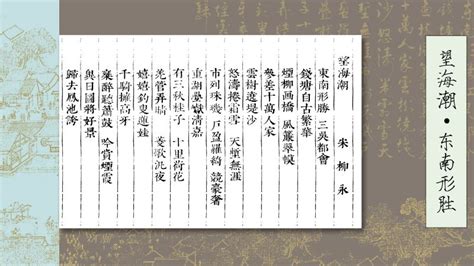 望海潮·东南形胜
望海潮 宋 柳永
東南形勝 三吳都會
錢塘自古繁華
煙柳画橋 風簾翠幙
參差十萬人家
雲樹遶堤沙
怒濤捲霜雪 天塹無涯
市列珠璣 戶盈羅綺 競豪奢
重湖疊巘清嘉
有三秋桂子 十里荷花
羌管弄晴 菱歌泛夜
嬉嬉釣叟蓮娃
千騎擁高牙
乘醉聽簫鼓 吟賞煙霞
異日圖將好景
歸去鳳池誇